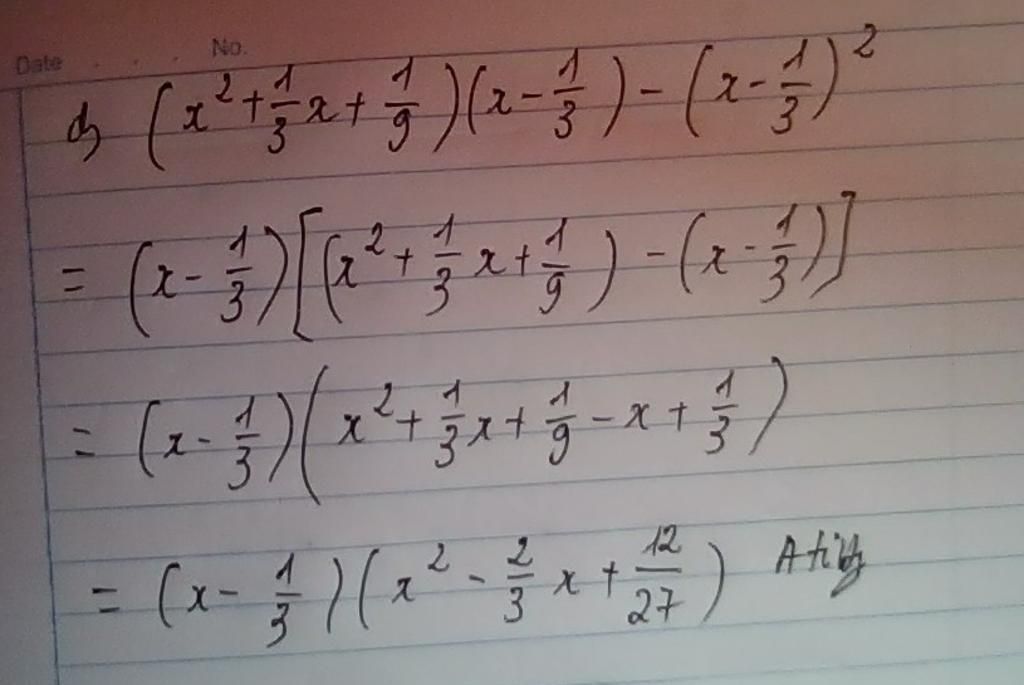 Date No.
d, (x² + 1/3 x + 1/9)(x - 1/3) - (x - 1/3)²
= (x - 1/3)[(x² + 1/3 x + 1/9) - (x - 1/3)]
= (x - 1/3)(x² + 1/3 x + 1/9 - x + 1/3)
= (x - 1/3)(x² - 2/3 x + 12/27)